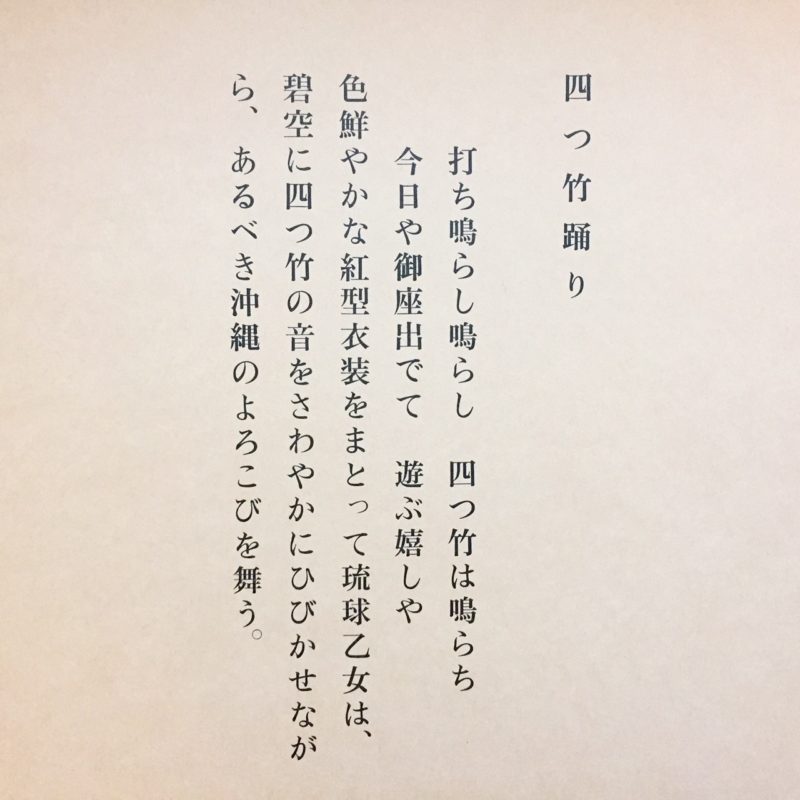 四つ竹踊り
打ち鳴らし鳴らし　四つ竹は鳴らち
今日や御座出でて　遊ぶ嬉しや
色鮮やかな紅型衣装をまとって琉球乙女は、
碧空に四つ竹の音をさわやかにひびかせなが
ら、あるべき沖縄のよろこびを舞う。